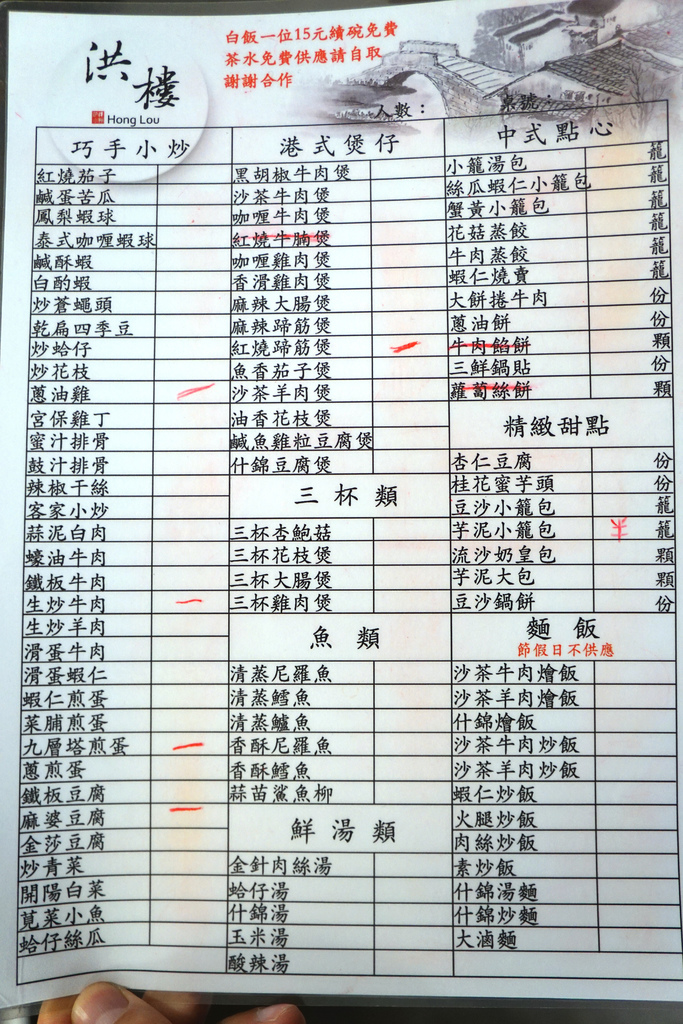 白飯一位15元續碗免費
茶水免費供應請自取
謝謝合作
洪樓
Hong Lou
人數：
桌號：
巧手小炒
紅燒茄子
鹹蛋苦瓜
鳳梨蝦球
泰式咖哩蝦球
鹹酥蝦
白酌蝦
炒蒼蠅頭
乾扁四季豆
炒蛤仔
炒花枝
蔥油雞
宮保雞丁
蜜汁排骨
鼓汁排骨
辣椒干絲
客家小炒
蒜泥白肉
蠔油牛肉
鐵板牛肉
生炒牛肉
生炒羊肉
滑蛋牛肉
滑蛋蝦仁
蝦仁煎蛋
菜脯煎蛋
九層塔煎蛋
蔥煎蛋
鐵板豆腐
麻婆豆腐
金莎豆腐
炒青菜
開陽白菜
莧菜小魚
蛤仔絲瓜
港式煲仔
黑胡椒牛肉煲
沙茶牛肉煲
咖哩牛肉煲
紅燒牛腩煲
咖哩雞肉煲
香滑雞肉煲
麻辣大腸煲
麻辣蹄筋煲
紅燒蹄筋煲
魚香茄子煲
沙茶羊肉煲
油香花枝煲
鹹魚雞粒豆腐煲
什錦豆腐煲
三杯類
三杯杏鮑菇
三杯花枝煲
三杯大腸煲
三杯雞肉煲
魚類
清蒸尼羅魚
清蒸鱈魚
清蒸鱸魚
香酥尼羅魚
香酥鱈魚
蒜苗鯊魚柳
鮮湯類
金針肉絲湯
蛤仔湯
什錦湯
玉米湯
酸辣湯
中式點心
小籠湯包 籠
絲瓜蝦仁小籠包 籠
蟹黃小籠包 籠
花菇蒸餃 籠
牛肉蒸餃 籠
蝦仁燒賣 籠
大餅捲牛肉 份
蔥油餅 份
牛肉餡餅 顆
三鮮鍋貼 份
蘿蔔絲餅 顆
精緻甜點
杏仁豆腐 份
桂花蜜芋頭 份
豆沙小籠包 籠
芋泥小籠包 半 籠
流沙奶皇包 顆
芋泥大包 顆
豆沙鍋餅 份
麵飯
節假日不供應
沙茶牛肉燴飯
沙茶羊肉燴飯
什錦燴飯
沙茶牛肉炒飯
沙茶羊肉炒飯
蝦仁炒飯
火腿炒飯
肉絲炒飯
素炒飯
什錦湯麵
什錦炒麵
大滷麵